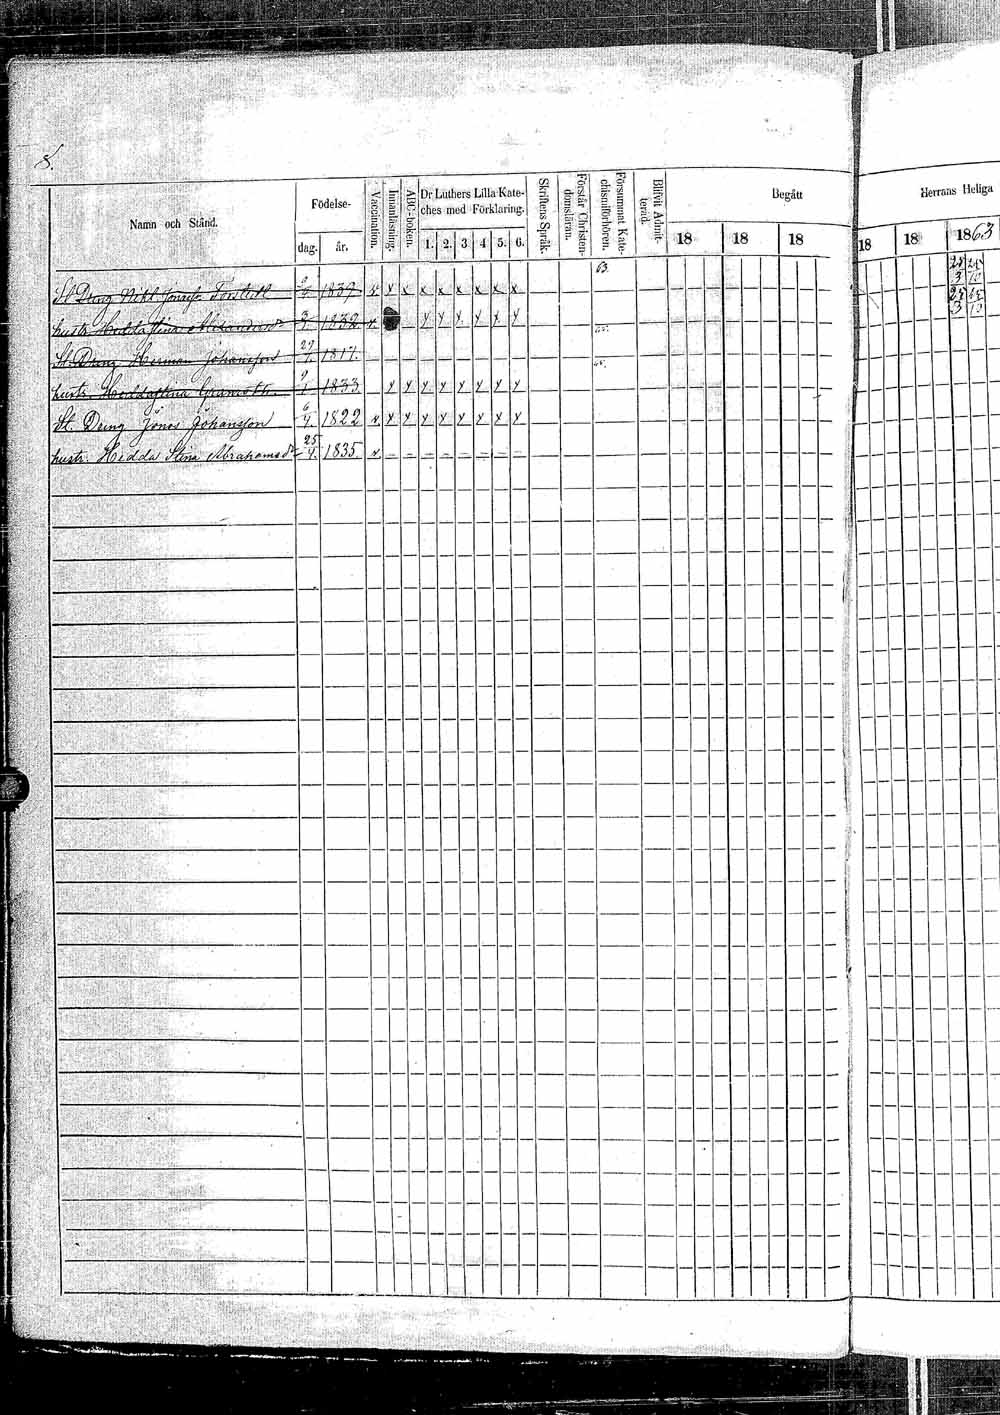 8.
Namn och Stånd.
Födelse-
dag.
år.
Vaccination.
Innanläsning.
ABC-boken.
Dr Luthers Lilla Kate-
ches med Förklaring.
1. 2. 3 4 5. 6.
Skriftens Språk.
Förstår Christen-
domsläran.
Försummat Kate-
chismiförhören.
Blifvit Admit-
terad.
Begått
18 18 18
Herrans Heliga
18 18 1863
63.
St Dreng Nikl. 1839 x x x x x x x x
25 25
3 10
hustr. Hedda Stina 3/7 1832 y y y y x y
25 25
3 10
65.
St. Dreng Herman Johansson 29 1817.
65.
hustr. Hedda Stina 9/1 1833 y y y y y y y y
St. Dreng Jonas Johansson 6/4 1822 v. y y y y y y y y
hustr. Hedda Stina Abrahamsdr 25/4. 1835 v. – – – – – – – –